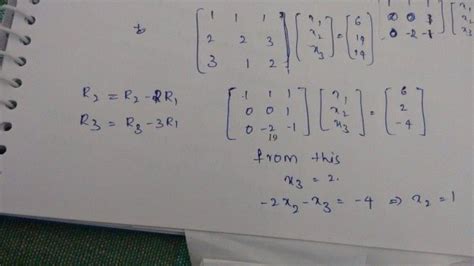 b [1 1 1; 2 2 3; 3 1 2] [x1 x2 x3] = [6 14 14]
R2 = R2 - 2R1
R3 = R3 - 3R1
[1 1 1; 0 0 1; 0 -2 -1] [x1 x2 x3] = [6 2 -4]
from this
x3 = 2.
-2x2 - x3 = -4 ⇒ x2 = 1